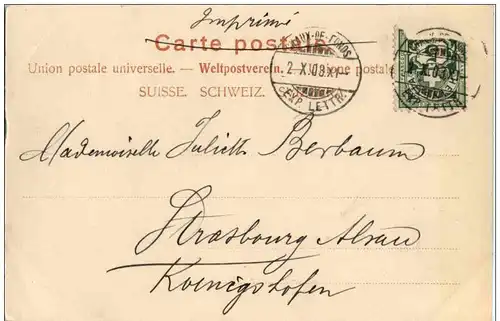 Imprimé
Carte postale
Union postale universelle. — Weltpostverein. — Unione postale
SUISSE. SCHWEIZ.
2. X.
EXP. LETTR.
Mademoiselle Juliette Berbaum
Strasbourg Alsace
Koenigshofen